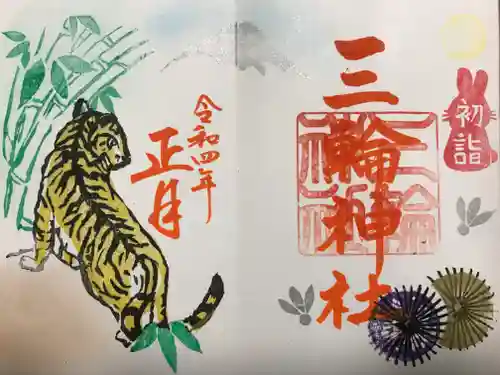 初詣
三輪神社
三輪神社
令和四年
正月